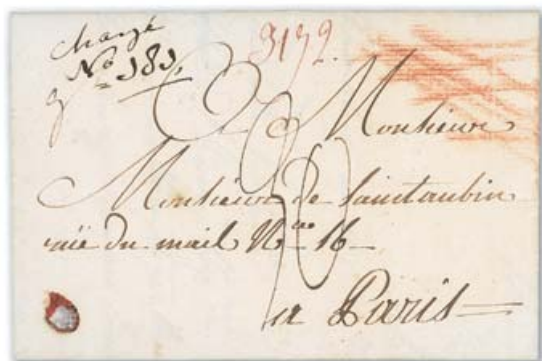 Chargé
N.º 181.
3192.
Monsieur
Monsieur de Saintaubin
ruë du mail N.ro 16
a Paris